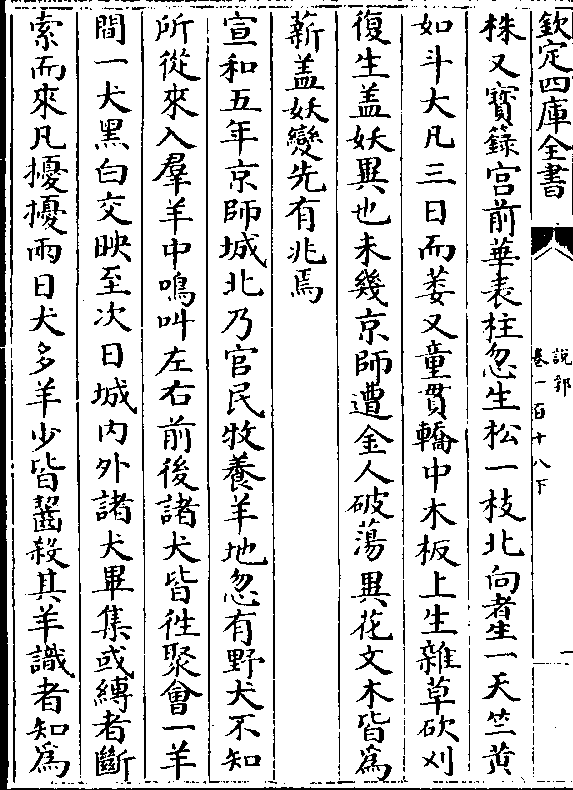 欽定四庫全書
說郛
卷一百十八下
株又寳籙宫前華表柱忽生松一枝北向者生一天竺黄
如斗大凡三日而萎又童貫轎中木板上生雜草砍刈
復生盖妖異也未幾京師遭金人破蕩異花文木皆為
薪盖妖變先有兆焉
宣和五年京師城北乃官民牧養羊地忽有野犬不知
所從來入羣羊中鳴叫左右前後諸犬皆徃聚會一羊
間一犬黑白交映至次日城内外諸犬畢集或縛者斷
索而來凡擾擾兩日犬多羊少皆齧殺其羊識者知為